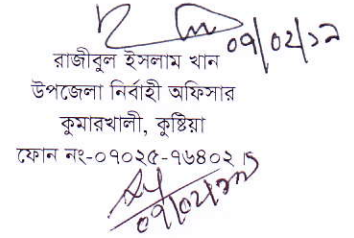 ০৭/০২/১৯
রাজীবুল ইসলাম খান
উপজেলা নির্বাহী অফিসার
কুমারখালী, কুষ্টিয়া
ফোন নং-০৭০২৫-৭৬৪০২।
০৭/০২/১৯